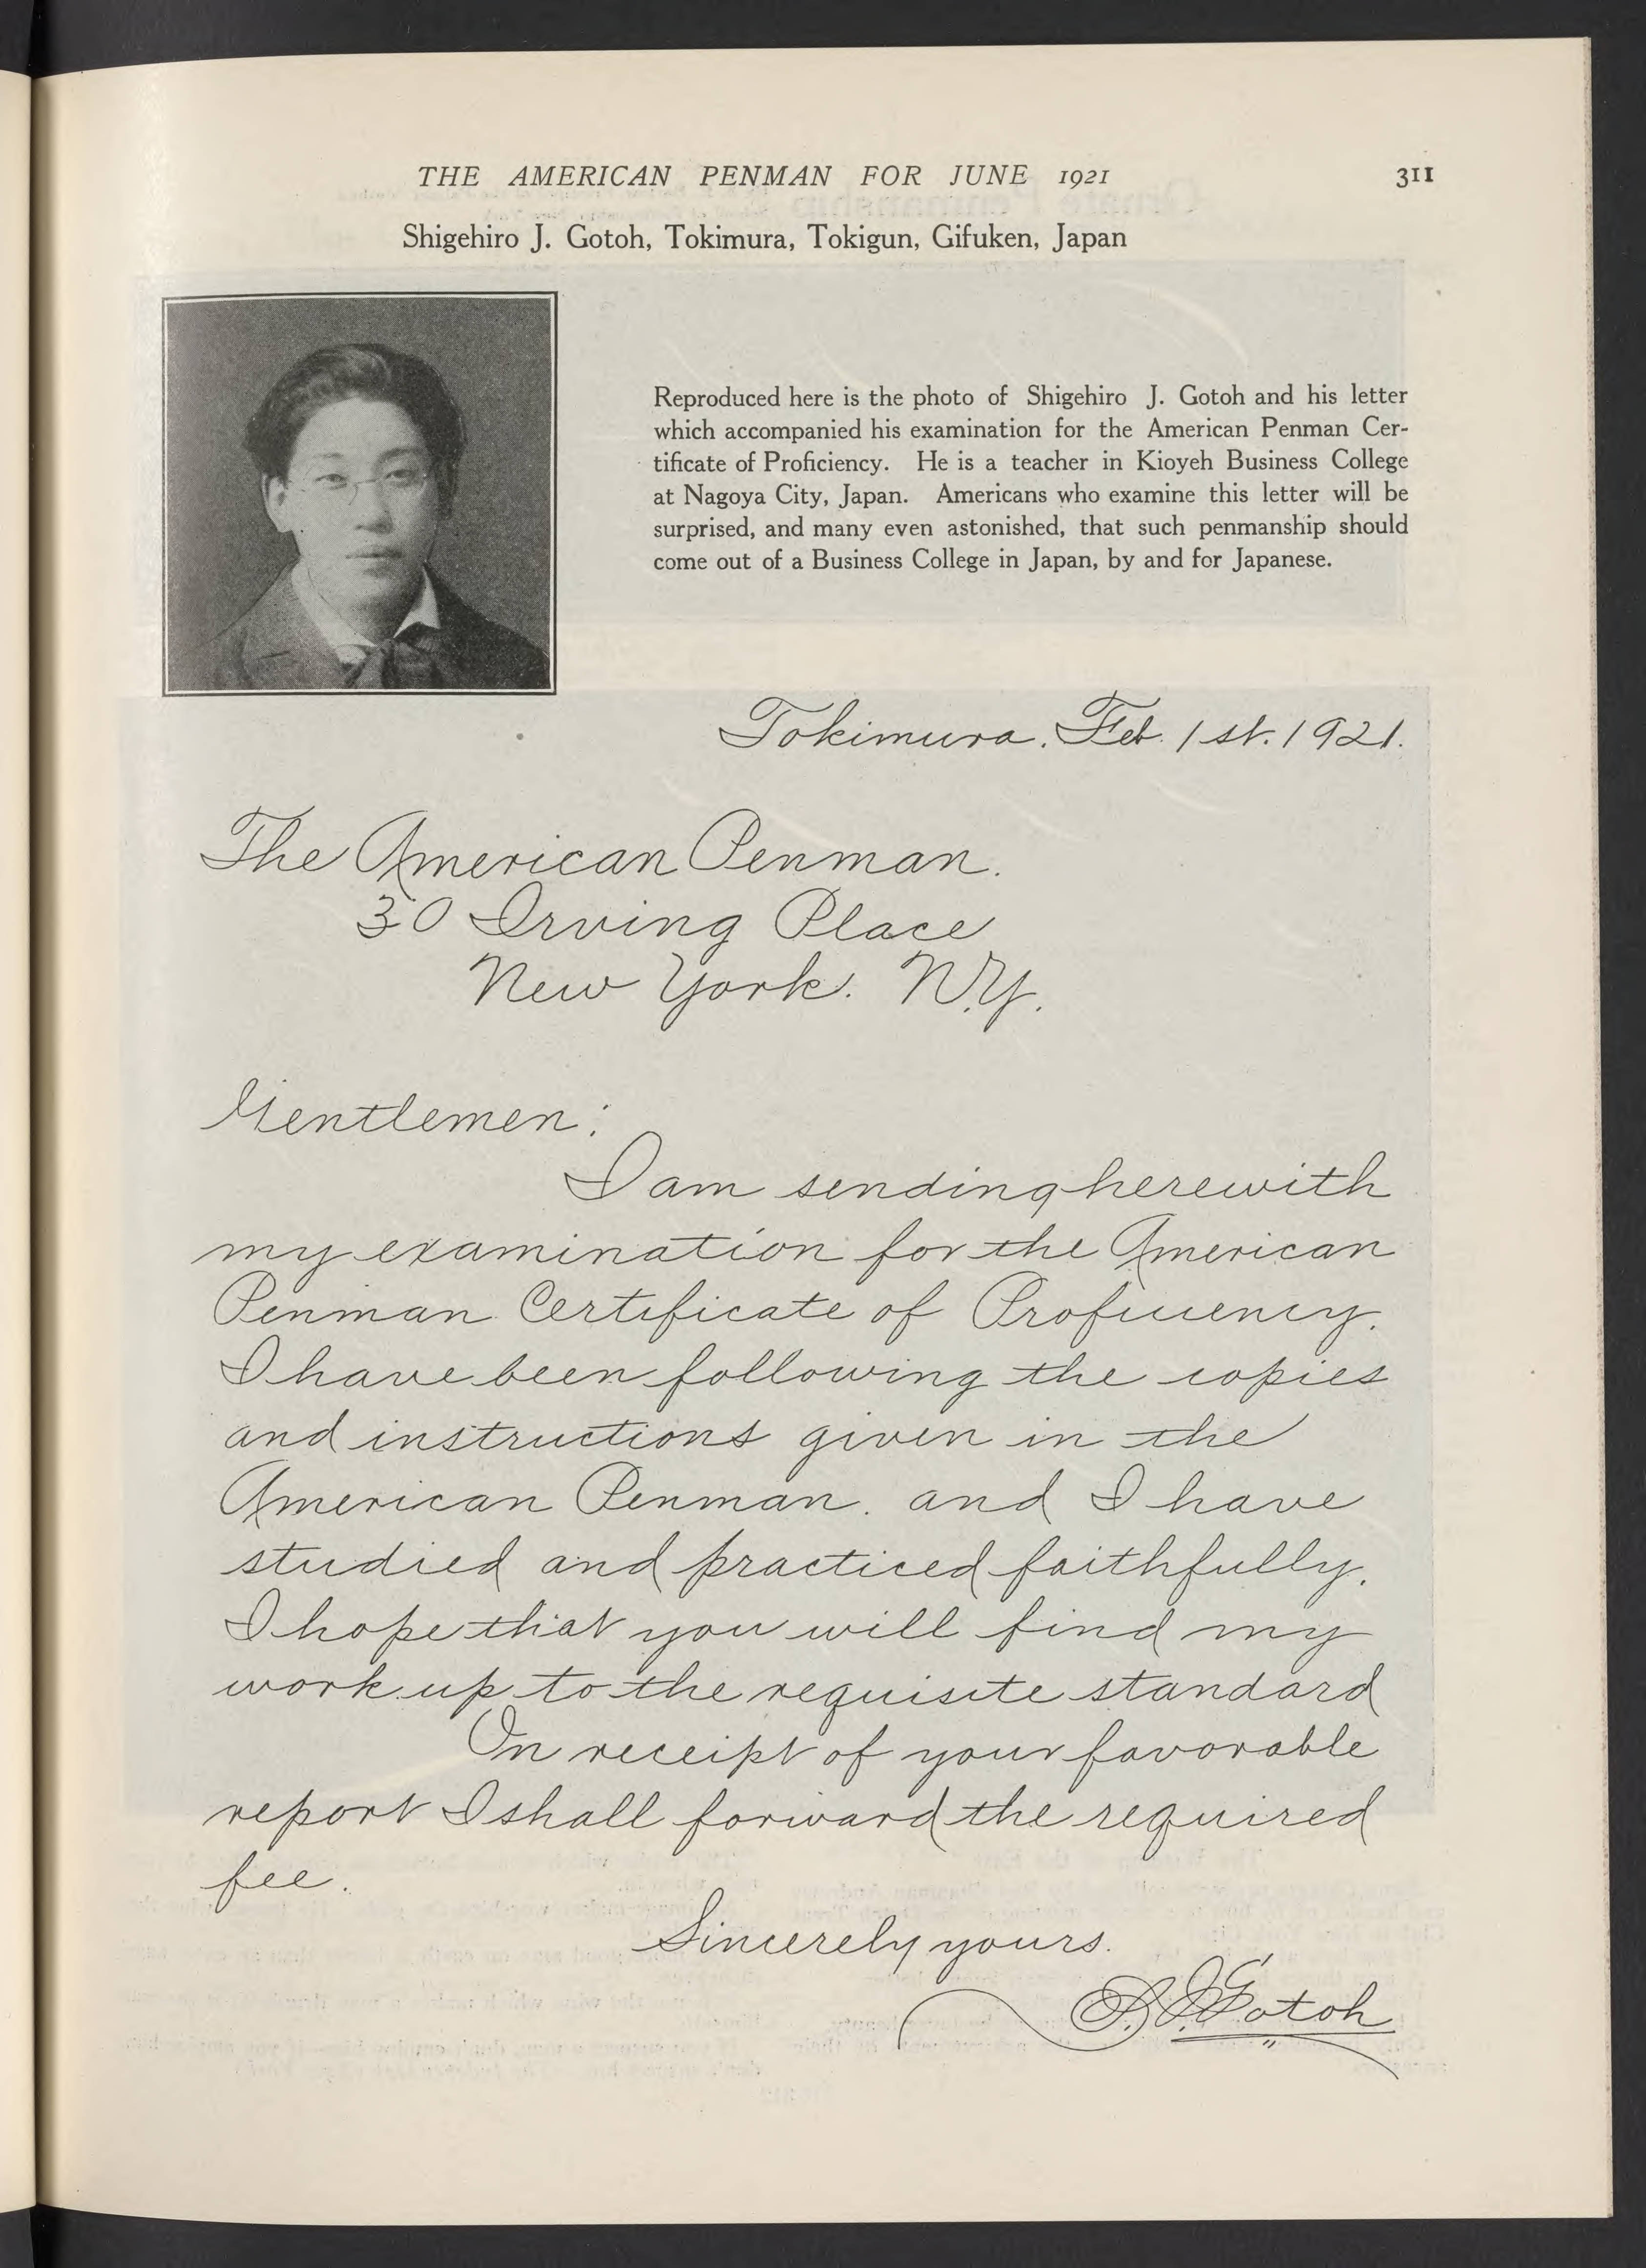 THE AMERICAN PENMAN FOR JUNE 1921 311
Shigehiro J. Gotoh, Tokimura, Tokigun, Gifuken, Japan
Reproduced here is the photo of Shigehiro J. Gotoh and his letter
which accompanied his examination for the American Penman Cer-
tificate of Proficiency. He is a teacher in Kioyeh Business College
at Nagoya City, Japan. Americans who examine this letter will be
surprised, and many even astonished, that such penmanship should
come out of a Business College in Japan, by and for Japanese.
Tokimura. Feb. 1st. 1921.
The American Penman.
30 Irving Place
New York. N.Y.
Gentlemen:
I am sending herewith
my examination for the American
Penman Certificate of Proficiency.
I have been following the copies
and instructions given in the
American Penman. and I have
studied and practiced faithfully.
I hope that you will find my
work up to the requisite standard
On receipt of your favorable
report I shall forward the required
fee.
Sincerely yours.
S. J. Gotoh